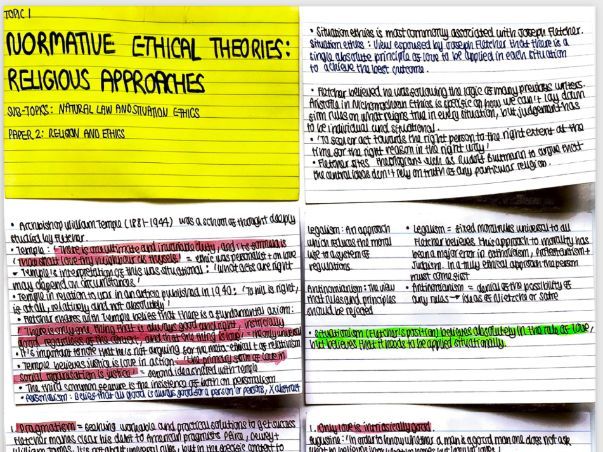 TOPIC 1
NORMATIVE ETHICAL THEORIES:
RELIGIOUS APPROACHES
SUB-TOPICS: NATURAL LAW AND SITUATION ETHICS
PAPER 2: RELIGION AND ETHICS
• Situation ethics is most commonly associated with Joseph Fletcher.
Situation ethics: View espoused by Joseph Fletcher that there is a
single absolute principle of love to be applied in each situation
to achieve the best outcome.
• Fletcher believed he was following the logic of many previous writers.
Aristotle in Nichomachean Ethics is specific on how we can't lay down
firm rules on what reigns true in every situation, but judgement has
to be individual and situational.
• 'To so or act towards the right person to the right extent at the
time for the right reason in the right way'
• Fletcher sites theologians such as Rudolf Bultmann to argue that
the central ideas don't rely on truth of any particular religion.
• Archbishop William Temple (1881-1944) was a school of thought deeply
studied by Fletcher.
• Temple: 'There is one ultimate and invariable duty, and its formula is
"Thou shalt love thy neighbour as thyself"' = ethic was personalist on love
• Temple's interpretation of this was situational: 'What acts are right
may depend on circumstances'
• Temple in relation to war in an article published in 1940: 'To kill is right,
is at all, relatively and not absolutely'
• Fletcher shares with Temple belief that there is a fundamental axiom:
'There is only one thing that is always good and right, intrinsically
good regardless of the context, and that one thing is love'
• It's important to note that this is not arguing for the meta-ethical of relativism
• Temple believes justice is love in action: 'The primary form of love in
social organisation is justice' = second idea shared with Temple
• The third common feature is the insistence of both on personalism
• Personalism: Belief that all good is always good for a person or persons, X abstract
Legalism: An approach
which reduces the moral
law to a system of
regulations
Antinomianism: The view
that rules and principles
should be rejected
• Legalism = fixed moral rules universal to all
Fletcher believes this approach to morality has
been a major error in Catholicism, Protestantism +
Judaism. In a truly ethical approach the person
must come first
• Antinomianism = denial of the possibility of
any rules → ideas of Nietzche or Satre
• Situationism (Fletcher's position) believes absolutely in the rule of love,
but believes that it needs to be applied situationally.
1. Pragmatism = seeking workable and practical solutions to get success
Fletcher makes clear his debt to American pragmatists Peirce, Dewey +
William James. It's not about universal rules, but in the specific context to
1. Only love is intrinsically good.
Augustine: 'In order to know whether a man is a good man one does not ask